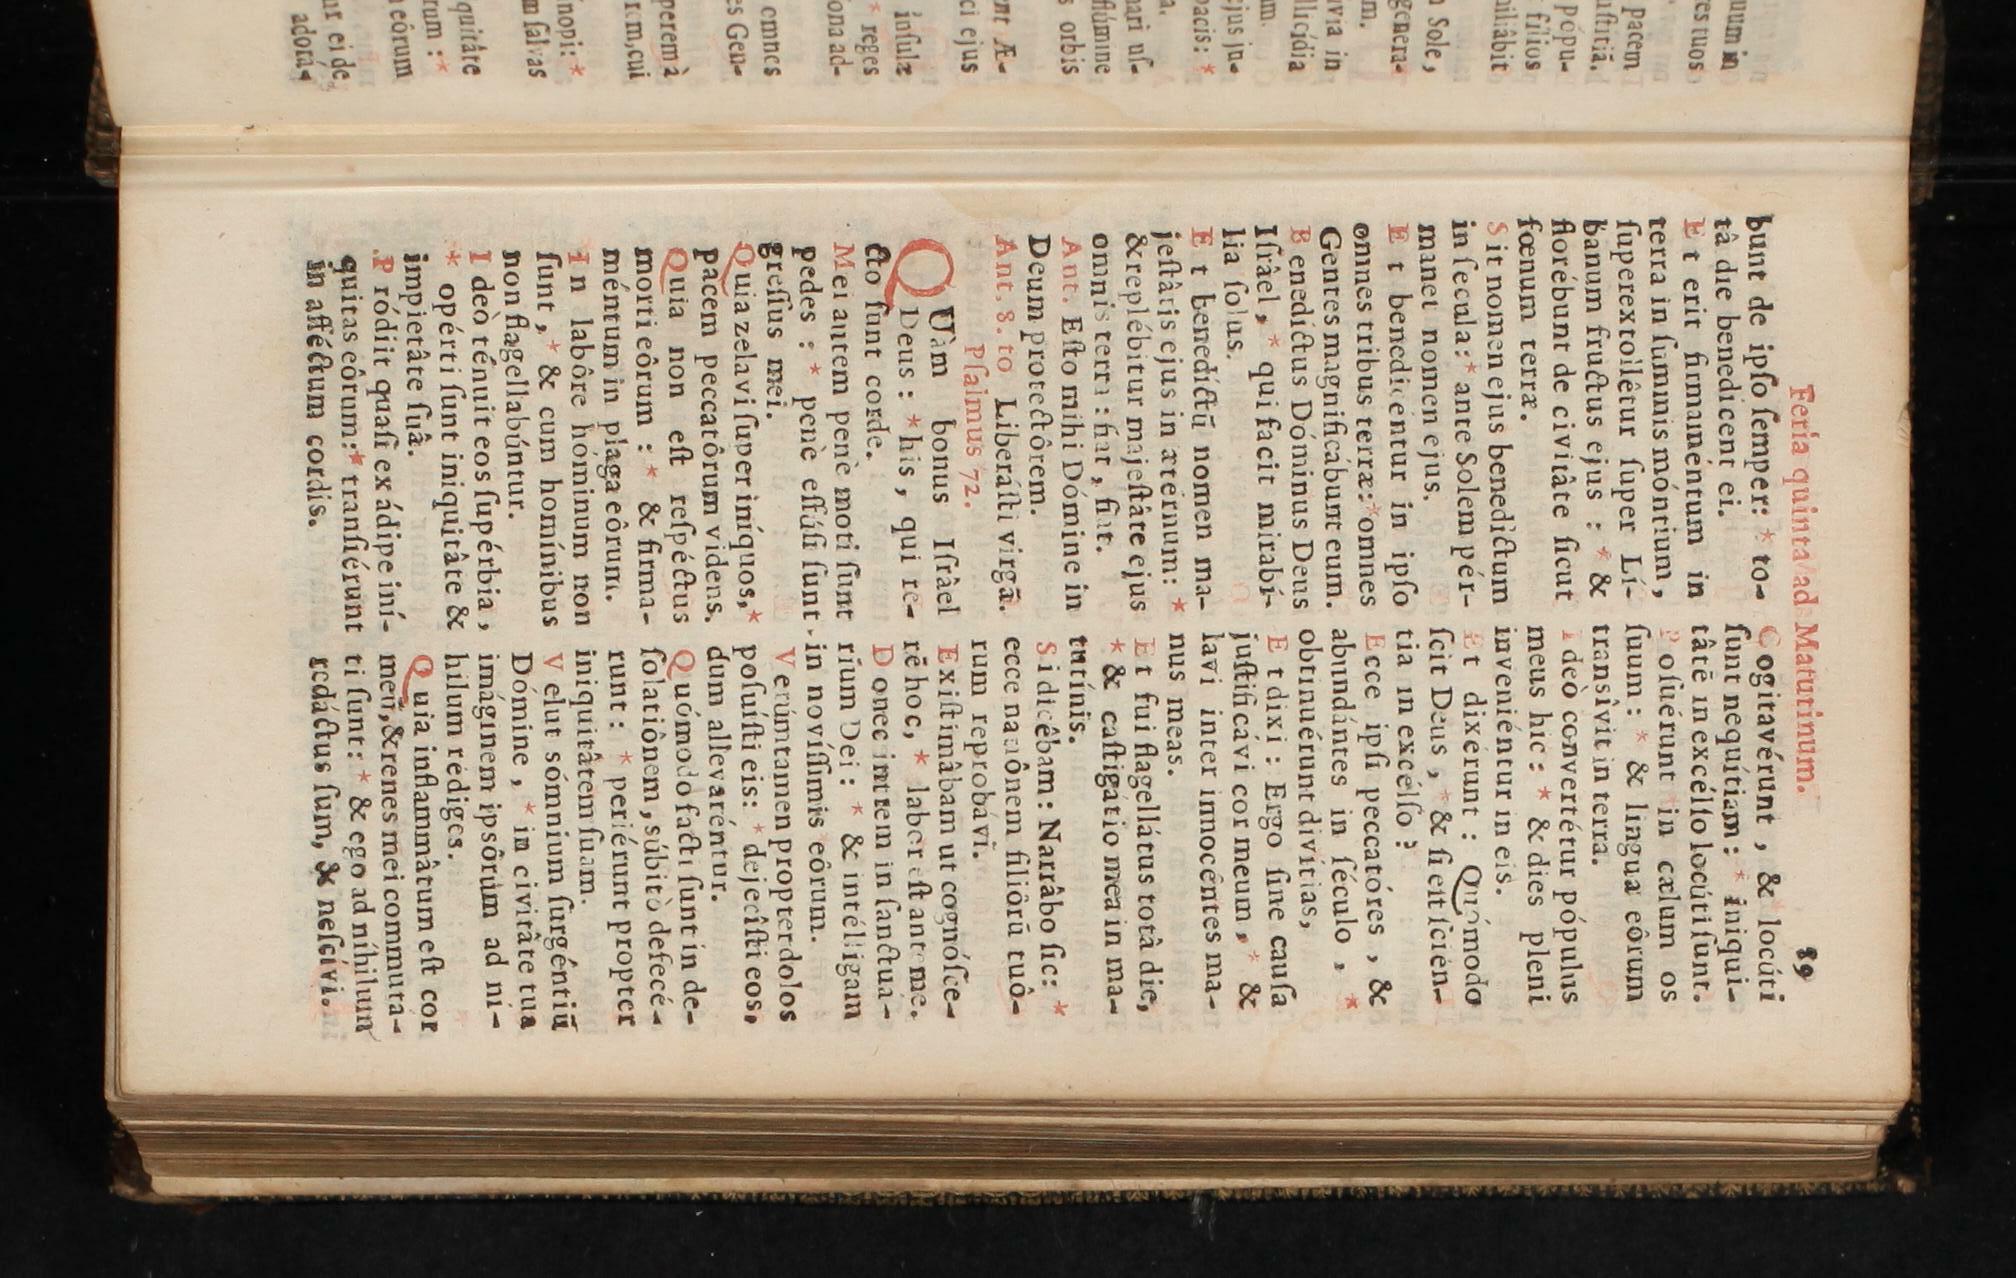 Feria quinta ad Matutinum. 89
bunt de ipſo ſemper: * to-
tâ die benedicent ei.
Et erit firmaméntum in
terra in ſummis móntium,
ſuperextollêtur ſuper Lí-
banum fructus ejus : * &
florébunt de civitâte ſicut
fœnum terræ.
Sit nomen ejus benedíctum
in ſecula: * ante Solem pér-
manet nomen ejus.
Et benedicentur in ipſo
omnes tribus terræ: * omnes
Gentes magnificábunt eum.
Benedíctus Dóminus Deus
Iſràel, * qui facit mirabí-
lia ſolus.
Et benedíctū nomen ma-
jeſtàtis ejus in æternum: *
& replébitur majeſtâte ejus
omnis terra : fiat, fiat.
Ant. Eſto mihi Dómine in
Deum protectôrem.
Ant. 8. to Liberáſti virgā.
Pſalmus 72.
QUàm bonus Iſràel
Deus : * his, qui re-
cto ſunt corde.
Mei autem penè moti ſunt
pedes : * penè effúſi ſunt
greſſus mei.
Quia zelavi ſuper iníquos, *
pacem peccatôrum videns.
Quia non eſt reſpéctus
morti eôrum : * & firma-
méntum in plaga eôrum.
In labôre hóminum non
ſunt, * & cum homínibus
non flagellabúntur.
Ideò ténuit eos ſupérbia,
* opérti ſunt iniquitâte &
impietâte ſuâ.
Pródiit quaſi ex ádipe iní-
quitas eôrum: * tranſiérunt
in afféctum cordis.
Cogitavérunt, & locúti
ſunt nequítiam : * iniqui-
tâtē in excélſo locúti ſunt.
Poſuérunt in cælum os
ſuum : * & lingua eôrum
tranſîvit in terra.
Ideò convertétur pópulus
meus hic : * & dies pleni
inveniéntur in eis.
Et dixérunt : Quómodo
ſcit Deus, * & ſi eſt ſcién-
tia in excélſo ?
Ecce ipſi peccatóres, &
abundántes in ſéculo, *
obtinuérunt divítias,
Et dixi : Ergo ſine cauſa
juſtificávi cor meum, * &
lavi inter innocéntes ma-
nus meas.
Et fui flagellátus totâ die,
* & caſtigátio mea in ma-
tutínis.
Si dicêbam : Narrâbo ſic: *
ecce nationem filiôrū tuô-
rum reprobávi.
Exiſtimâbam ut cognóſce-
rē hoc, * labor eſt ante me.
Donec intrem in ſanctua-
rium Dei : * & intélligam
in novíſſimis eôrum.
Verúmtamen propter dolos
poſuíſti eis: * dejecîſti eos,
dum allevaréntur.
Quómodo facti ſunt in de-
ſolatiônem, súbitò defecé-
runt : * periérunt propter
iniquitâtem ſuam.
Velut sómnium ſurgéntiū
Dómine, * in civitâte tua
imáginem ipsôrum ad ní-
hilum rédiges.
Quia inflammâtum eſt cor
meū, & renes mei commuta-
ti ſunt: * & ego ad níhilum
redáctus ſum, & neſcívi.